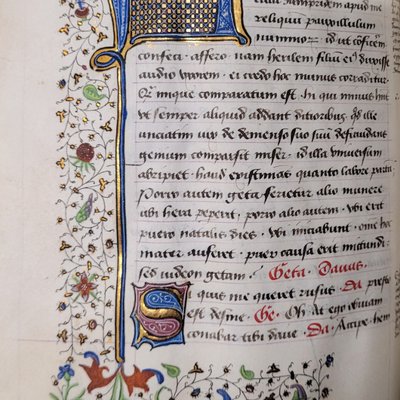 iampridem apud me
reliqui pauxillulum
nummorum · id ut cōficerem
confeci · affero · nam herilem filiū eius duxisse
audio uxorem · ei credo hoc munus corraditur
Qm̄ inique comparatum est · hi qui minus hn̄t
vt semper aliquid addant ditioribus · qd̄ ille
unciatim vix de demenso suo suū defraudans
genium comparsit miser · id illa vniuersum
abripiet · haud existimās quanto labore partū
Porro autem geta ferietur alio munere
vbi hera peperit · porro alio autem · vbi erit
puero natalis dies · vbi iniciabunt · omne hoc
mater auferet · puer causa erit mittundi ·
sed videon getam · Geta · Dauus ·
Si quis me queret rufus · Da presto
est desine · Ge · Oh · At ego obuiam
conabar tibi daue · Da · Accipe hem